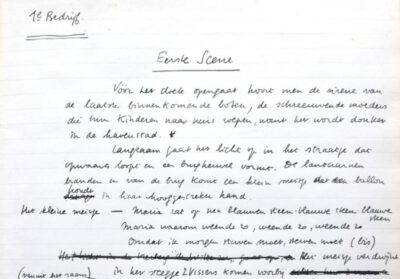 1e Bedrijf.
Eerste Scene
Vóór het doek opengaat hoort men de sirene van
de laatste binnenkomende boten, de schreeuwende moeders
die hun kinderen naar huis roepen, want het wordt donker
in de havenstad.
Langzaam gaat het licht op in het straatje dat
opwaarts loopt en een brugheuvel vormt. De lantaarnen
branden en van de brug komt een klein meisje een ballon
houdt in haar hooggestreken hand
Het kleine meisje — Maria zat op nen blauwen steen - blauwe steen - blauwe steen
Maria waarom weende zo, weende zo, weende zo
Omdat ik morgen sterven moet, sterven moet (bis)
Het meisje verdwijnt
(vanuit het raam) in het steegje 2 vissers komen voorbij